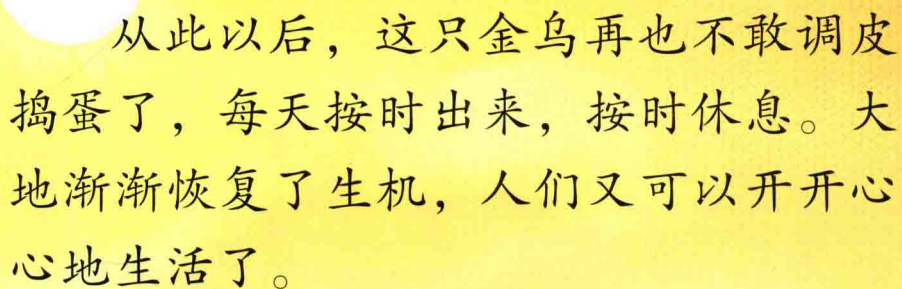 从此以后，这只金乌再也不敢调皮
捣蛋了，每天按时出来，按时休息。大
地渐渐恢复了生机，人们又可以开开心
心地生活了。